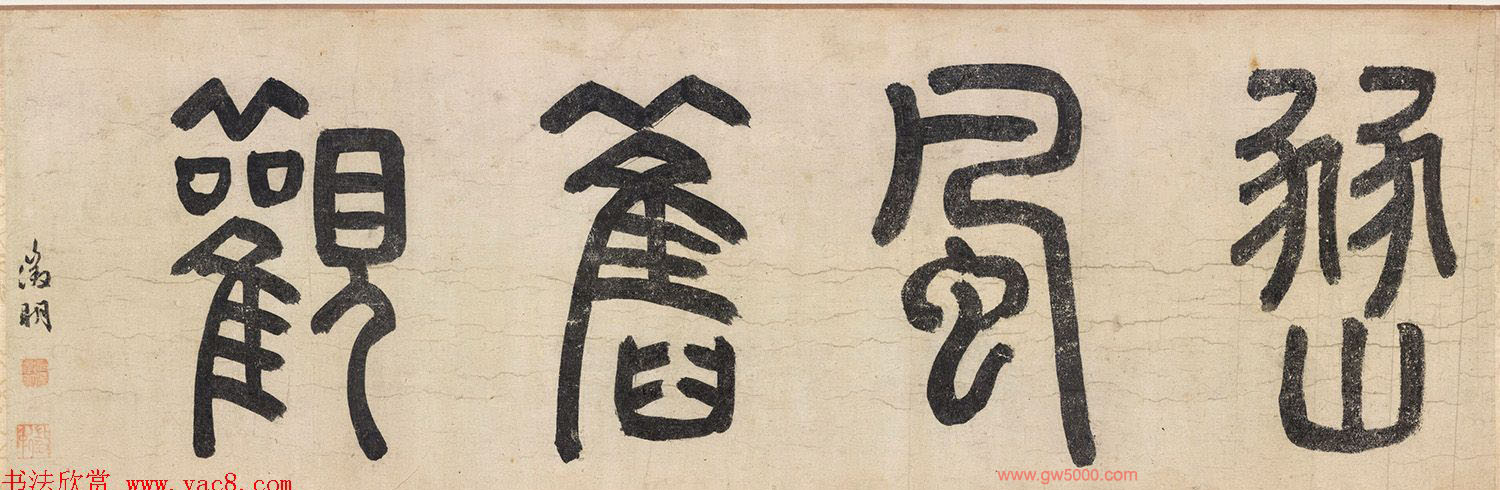 豳風舊觀
徵明
www.gw5000.com
书法欣赏 www.yac8.com